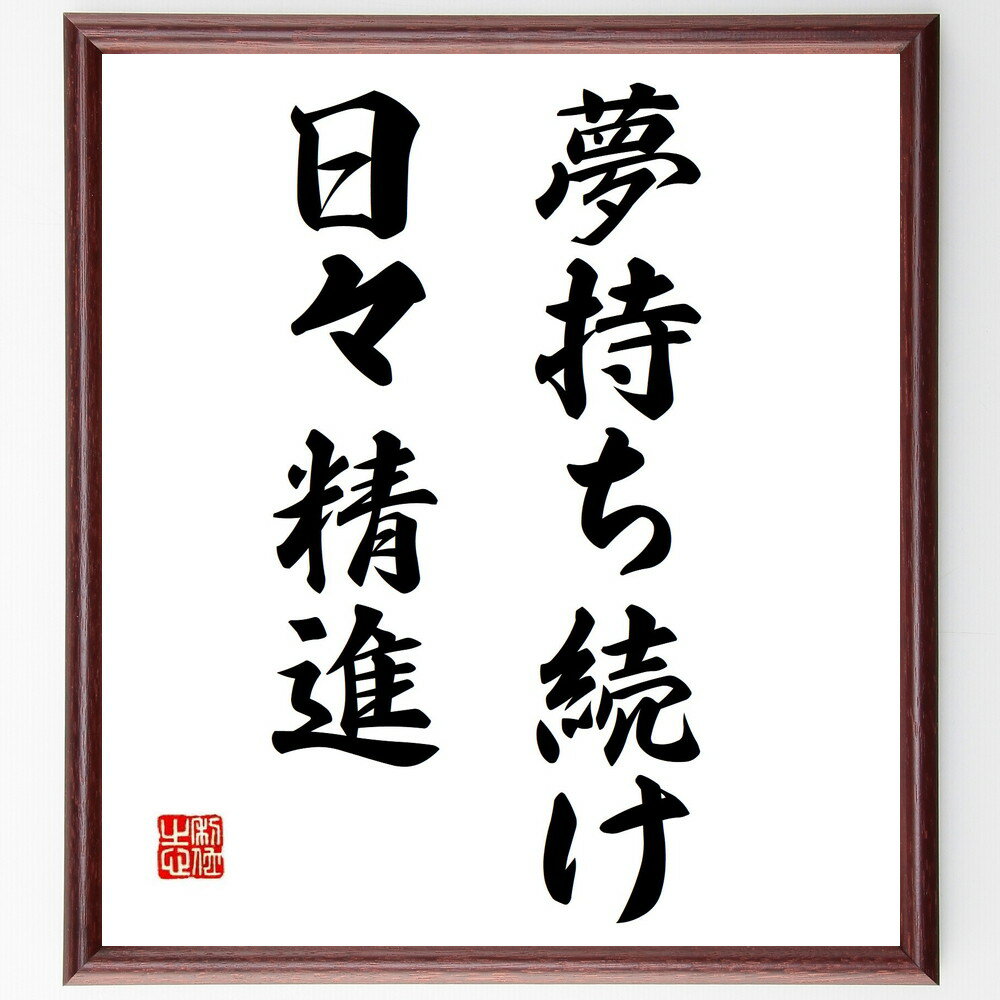 夢持ち続け
日々精進